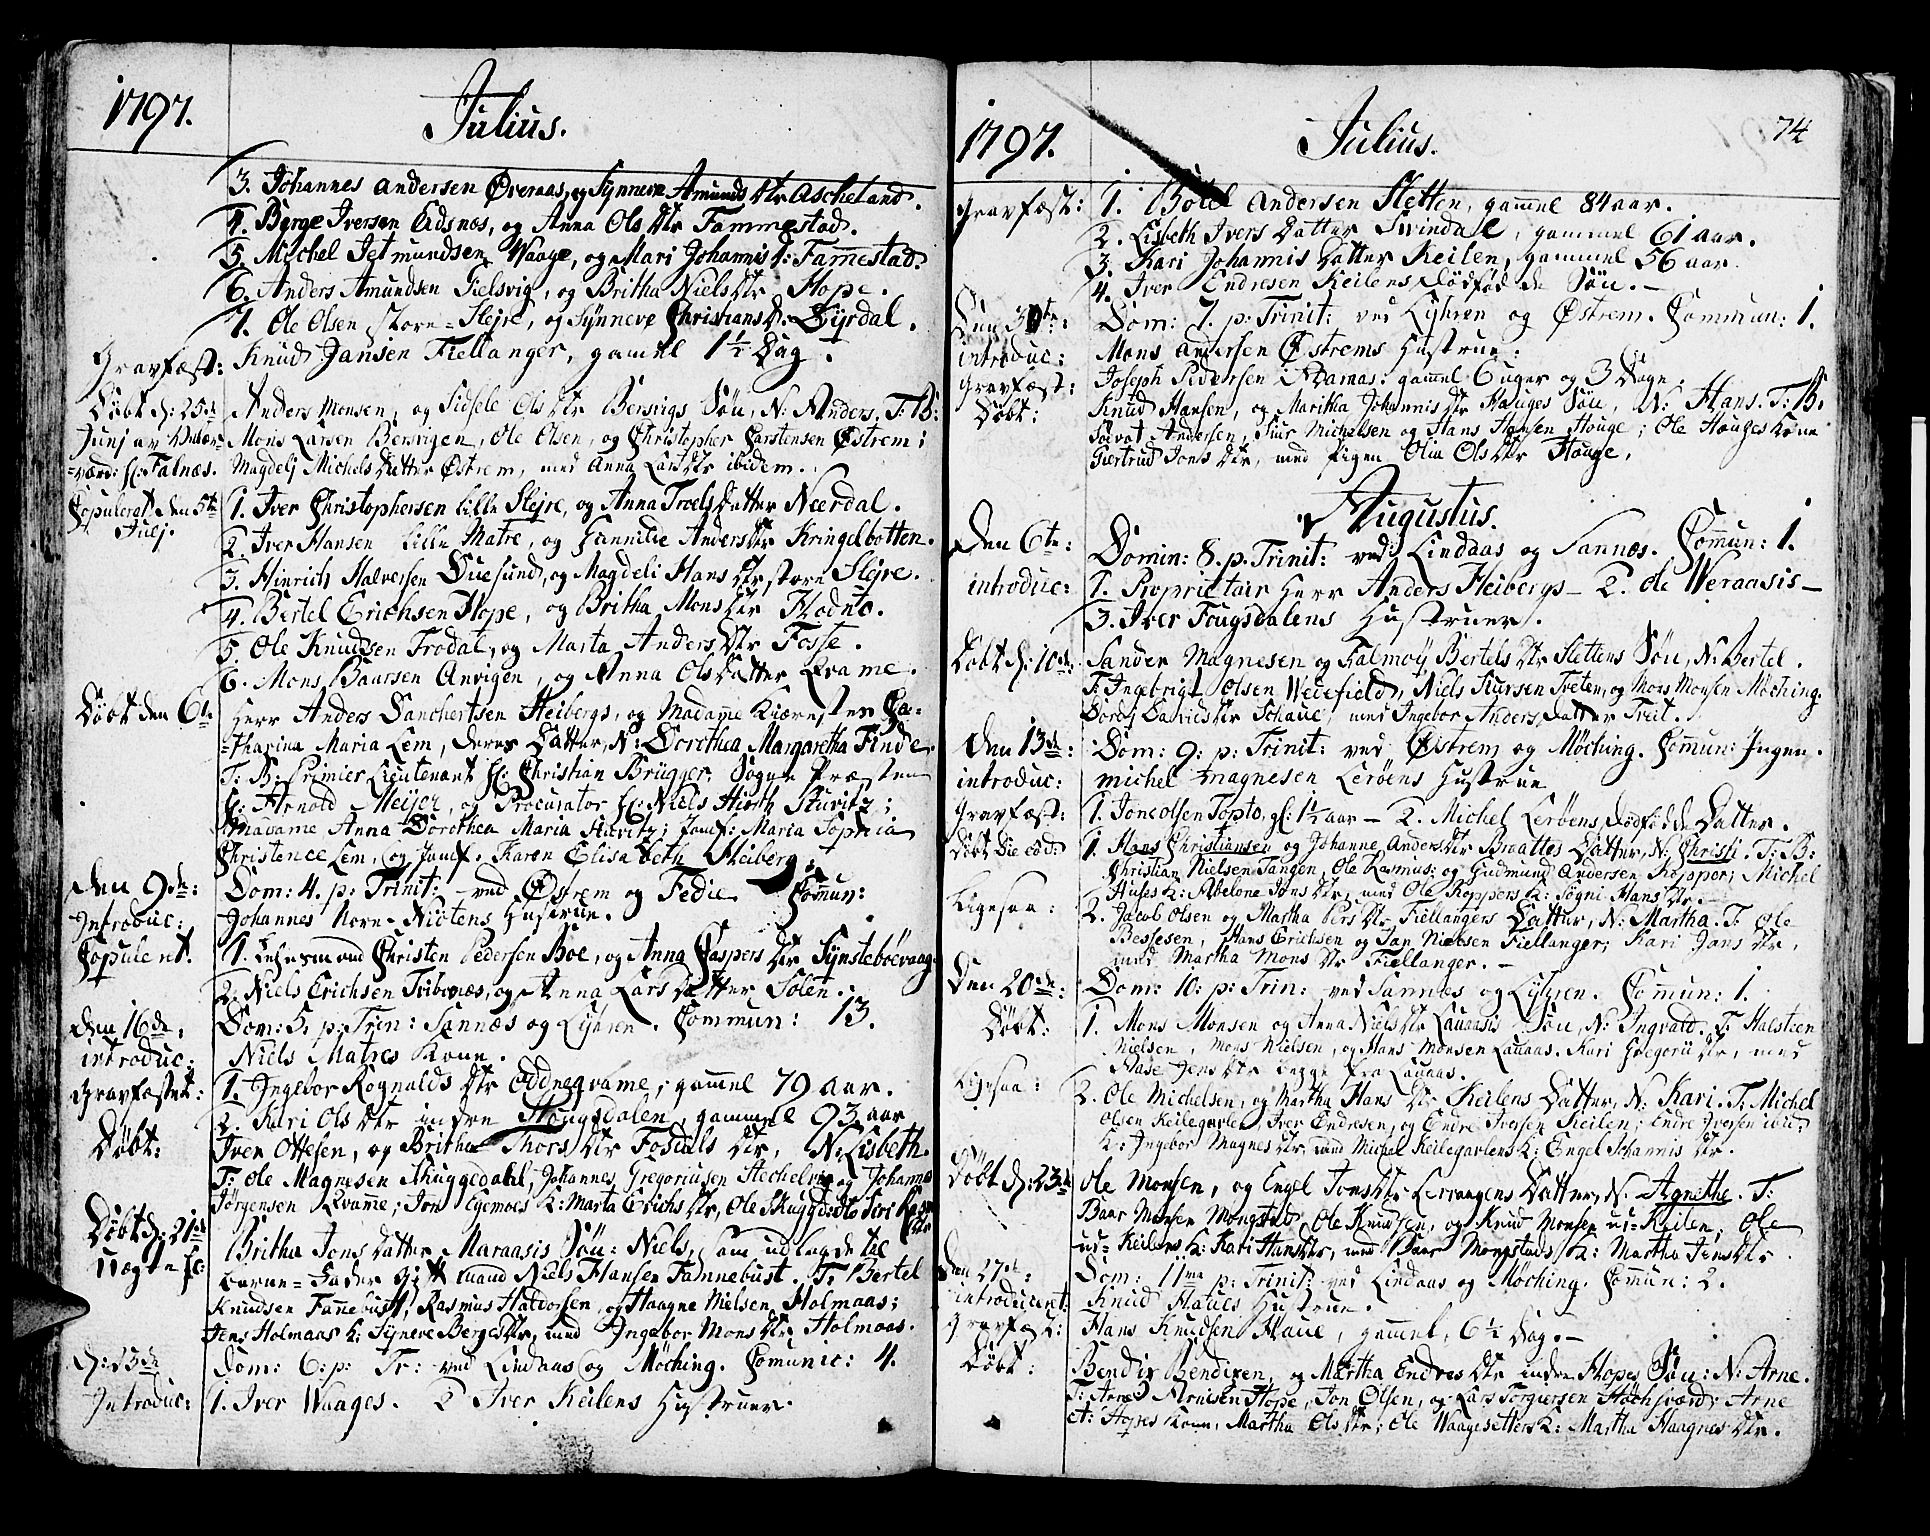 1797. Julius.
3. Johannes Andersen Øveraas, og Synneve Amunds Dtr Ascheland.
4. Børge Iversen Eidsnæs, og Anna Ols Dtr Fammestad.
5. Michel Jetmundsen Waage, og Mari Johannis D: Fam̄estad.
6. Anders Amundsen Fielsvig, og Britha Niels Dtr Hope.
7. Ole Olsen store-Slejre, og Synneve Christians D: Dyrdal.
Gravfæst: Knud Jansen Fiellanger, gamel 1½ Dag.
Døbt d: 25de Anders Monsen, og Sidsele Ols Dtr Bersvigs Søn, N: Anders. T: B:
Junj av Mons Larsen Bersvigen, Ole Olsen, og Christopher Carstensen Østrem;
Hr: Falnæs. Magdelj Michels Datter Østrem, med Anna Lars Dtr ibidem.
Copuleret den 5te 1. Iver Christophersen Lille Slejre, og Anna Troels Datter Neerdal.
Julj. 2. Iver Hansen Lille Matre, og Gunnilde Anders Dtr Kringelbotten.
3. Hinrich Halversen Duesund, og Magdeli Hans Dtr store Slejre.
4. Bertel Erichsen Hope, og Britha Mons Dtr Kodno.
5. Ole Knudsen Frodal, og Marta Anders Dtr Fosse.
6. Mons Baarsen Anvigen, og Anna Ols Datter Qvame.
Døbt den 6te Herr Anders Danchertsen Heibergs, og Madam̄e Kiæresten Ca-
-tharina Maria Lem, deres Datter, N: Dorothea Margaretha Finde.
T: B: Primier Lieutenant Hr: Christian Brügger, Sogne Præsten
Hr: Arnold Meijer, og Procurator Hr: Niels Hioth Sturitz;
Madame Anna Dorothea Maria Sturitz; Jomf: Maria Sophia
Christence Lem, og Jomf. Karen Elisabeth Heiberg.
Den 9de: Dom: 4. p: Trinit: ved Østrem og Fedie Com̄un:
Introduc: Johannes Nore-Niøtens Hustrue.
Copuleret. 1. Lehnsmand Christen Pedersen Boe, og Anna Caspers Dtr Synstebøevaag.
2. Niels Erichsen Tvibernæs, og Anna Lars Datter Solen.
Den 16de: Dom: 5: p: Trin: Sannæs og Lyhren. Com̄un: 13.
introduc: Niels Matres Kone.
Gravfæstet: 1. Ingebor Rognalds Dtr Oddneqvame, gam̄el 79 aar.
2. Kari Ols Dtr indre Hougsdalen, gammel 93 aar.
Døbt: Iver Ottesen, og Britha Thors Dtr Fosdals Dtr, N: Lisbeth.
T: Ole Magnesen Skuggedahl, Johannes Gregoriusen Hechelvig og Johanne
Jørgensen Qvam̄e; Jon Eyemoes K: Marta Erichs Dtr, Ole Skuggedals Siri
Døbt d: 21de Britha Jons Datter Maraasis Søn: Niels, som udlagde til
uægte Barne-Fader Gift mand Niels Hansen Fannebust. T: Bertel
Knudsen Fan̄ebust, Rasmus Haldorsen, og Haagne Nielsen Holmaas;
Jens Holmaas K: Signeve Berges Dtr, med Ingebor Mons Dtr Holmaas.
d: 23de Dom: 6: p: Tr: ved Lindaas og Møching. Com̄unic: 4.
Introduc: 1. Iver Waages. 2 Iver Keilens Hustruer.

1797. Julius. 74
Gravfæst: 1. Botel Andersen Sletten, gam̄el 84 aar.
2. Lisbeth Ivers Datter Svindal, gammel 61 aar.
3. Kari Johannis Datter Keilen, gammel 56 aar.
4. Iver Endresen Keilens Dødfødde Søn.
Den 30te: Dom: 7. p: Trinit: ved Lyhren og Østrem. Com̄un: 1.
introduc: Mons Andersen Østrems Hustrue:
Gravfæst: Joseph Pedersen Adarnas: gam̄el 6 uger og 3 Dage.
Døbt: Knud Hansen, og Maritha Johannis Dtr Houges Søn, N: Hans. T: B:
Solvat Andersen, Siur Michelsen og Hans Hansen Houge; Ole Houges Kone
Giertrud Jons Dtr, med Pigen Olia Ols Dtr Houge.
Augustus.
Den 6te: Domin: 8. p: Trinit: ved Lindaas og Sannæs. Com̄un: 1.
introduc: 1. Proprietair Herr Anders Heibergs – 2. Ole Weraasis –
3. Iver Fougsdalens Hustruer.
Døbt d: 10de: Sander Magnesen og Galmøy Bertels Dtr Slettens Søn, N: Bertel.
T: Ingebrigt Olsen Weiefield, Niels Siursen Tveten, og Mons Monsen Møching.
Dordj Davids Dtr Schaue, med Ingebor Anders Datter Treit.
Den 13de: Dom: 9: p: Trinit: ved Østrem og Møching. Com̄un: Ingen.
introduc: Michel Magnesen Lerøens Hustrue
Gravfæst: 1. Jon Olsen Torsto, gl: 1½ aar – 2. Michel Lerøens Dødfødde Datter.
Døbt Die eod: 1. Hans Christiansen og Johanne Anders Dtr Braattes Datter, N: Christi. T: B:
Christian Nielsen Tangen, Ole Rasmus: og Gudmund Andersen Ropper; Michel
Huses K: Abelone Jons Dtr, med Ole Roppers K: Søgni Hans Dtr.
Ligesaa: 2. Jacob Olsen og Martha Pers Dtr Fiellangers Datter, N: Martha. T: Ole
Bessesen, Hans Erichsen og Jan Nielsen Fiellanger; Kari Jans Dtr,
med Martha Mons Dtr Fiellanger. –
Den 20de: Dom: 10: p: Trin: ved Sannæs og Lyhren. Com̄un: 1.
Døbt: 1. Mons Monsen og Anna Niels Dtr Lauaasis Søn, N: Ingvald. T: Halsteen
Nielsen, Mons Nielsen, og Hans Monsen Lauaas. Kari Gregorii Dtr, med
Aase Jens Dtr begge fra Lauaas.
Ligesaa: 2. Ole Michelsen, og Martha Hans Dtr Keilens Datter, N: Kari. T: Michel
Olsen Keilegavlen, Iver Endresen, og Endre Iversen Keilen; Endre Iversen ibid:
K: Ingebor Magnes Dtr, med Michel Keilegavlens K: Engel Johannis Dtr.
Døbt d: 23de Ole Monsen, og Engel Jons Dtr Lervigens Datter, N. Agnethe. T:
Baar Monsen Mongstad, Ole Knudsen, og Knud Monsen ud-Keilen; Ole
ud-Keilens K: Kari Hans Dtr, med Baar Mongstads K: Martha Jens Dtr.
Den 27de: Dom: 11me p: Trinit: ved Lindaas og Møching. Com̄un: 2.
introduceret: Knud Haues Hustrue.
Gravfæst: Hans Knudsen Haue, gam̄el, 6½ Dag. –
Døbt: Bendix Bendixen, og Martha Endres Dtr indre Hopes Søn: N: Arne.
T: Arne Arnesen Hope, Jon Olsen, og Lars Torgiersen Høchsvard; Arne
et: Hopes Kone, Martha Ols Dtr; Ole Waagesetters K: Martha Haagnes Dtr.